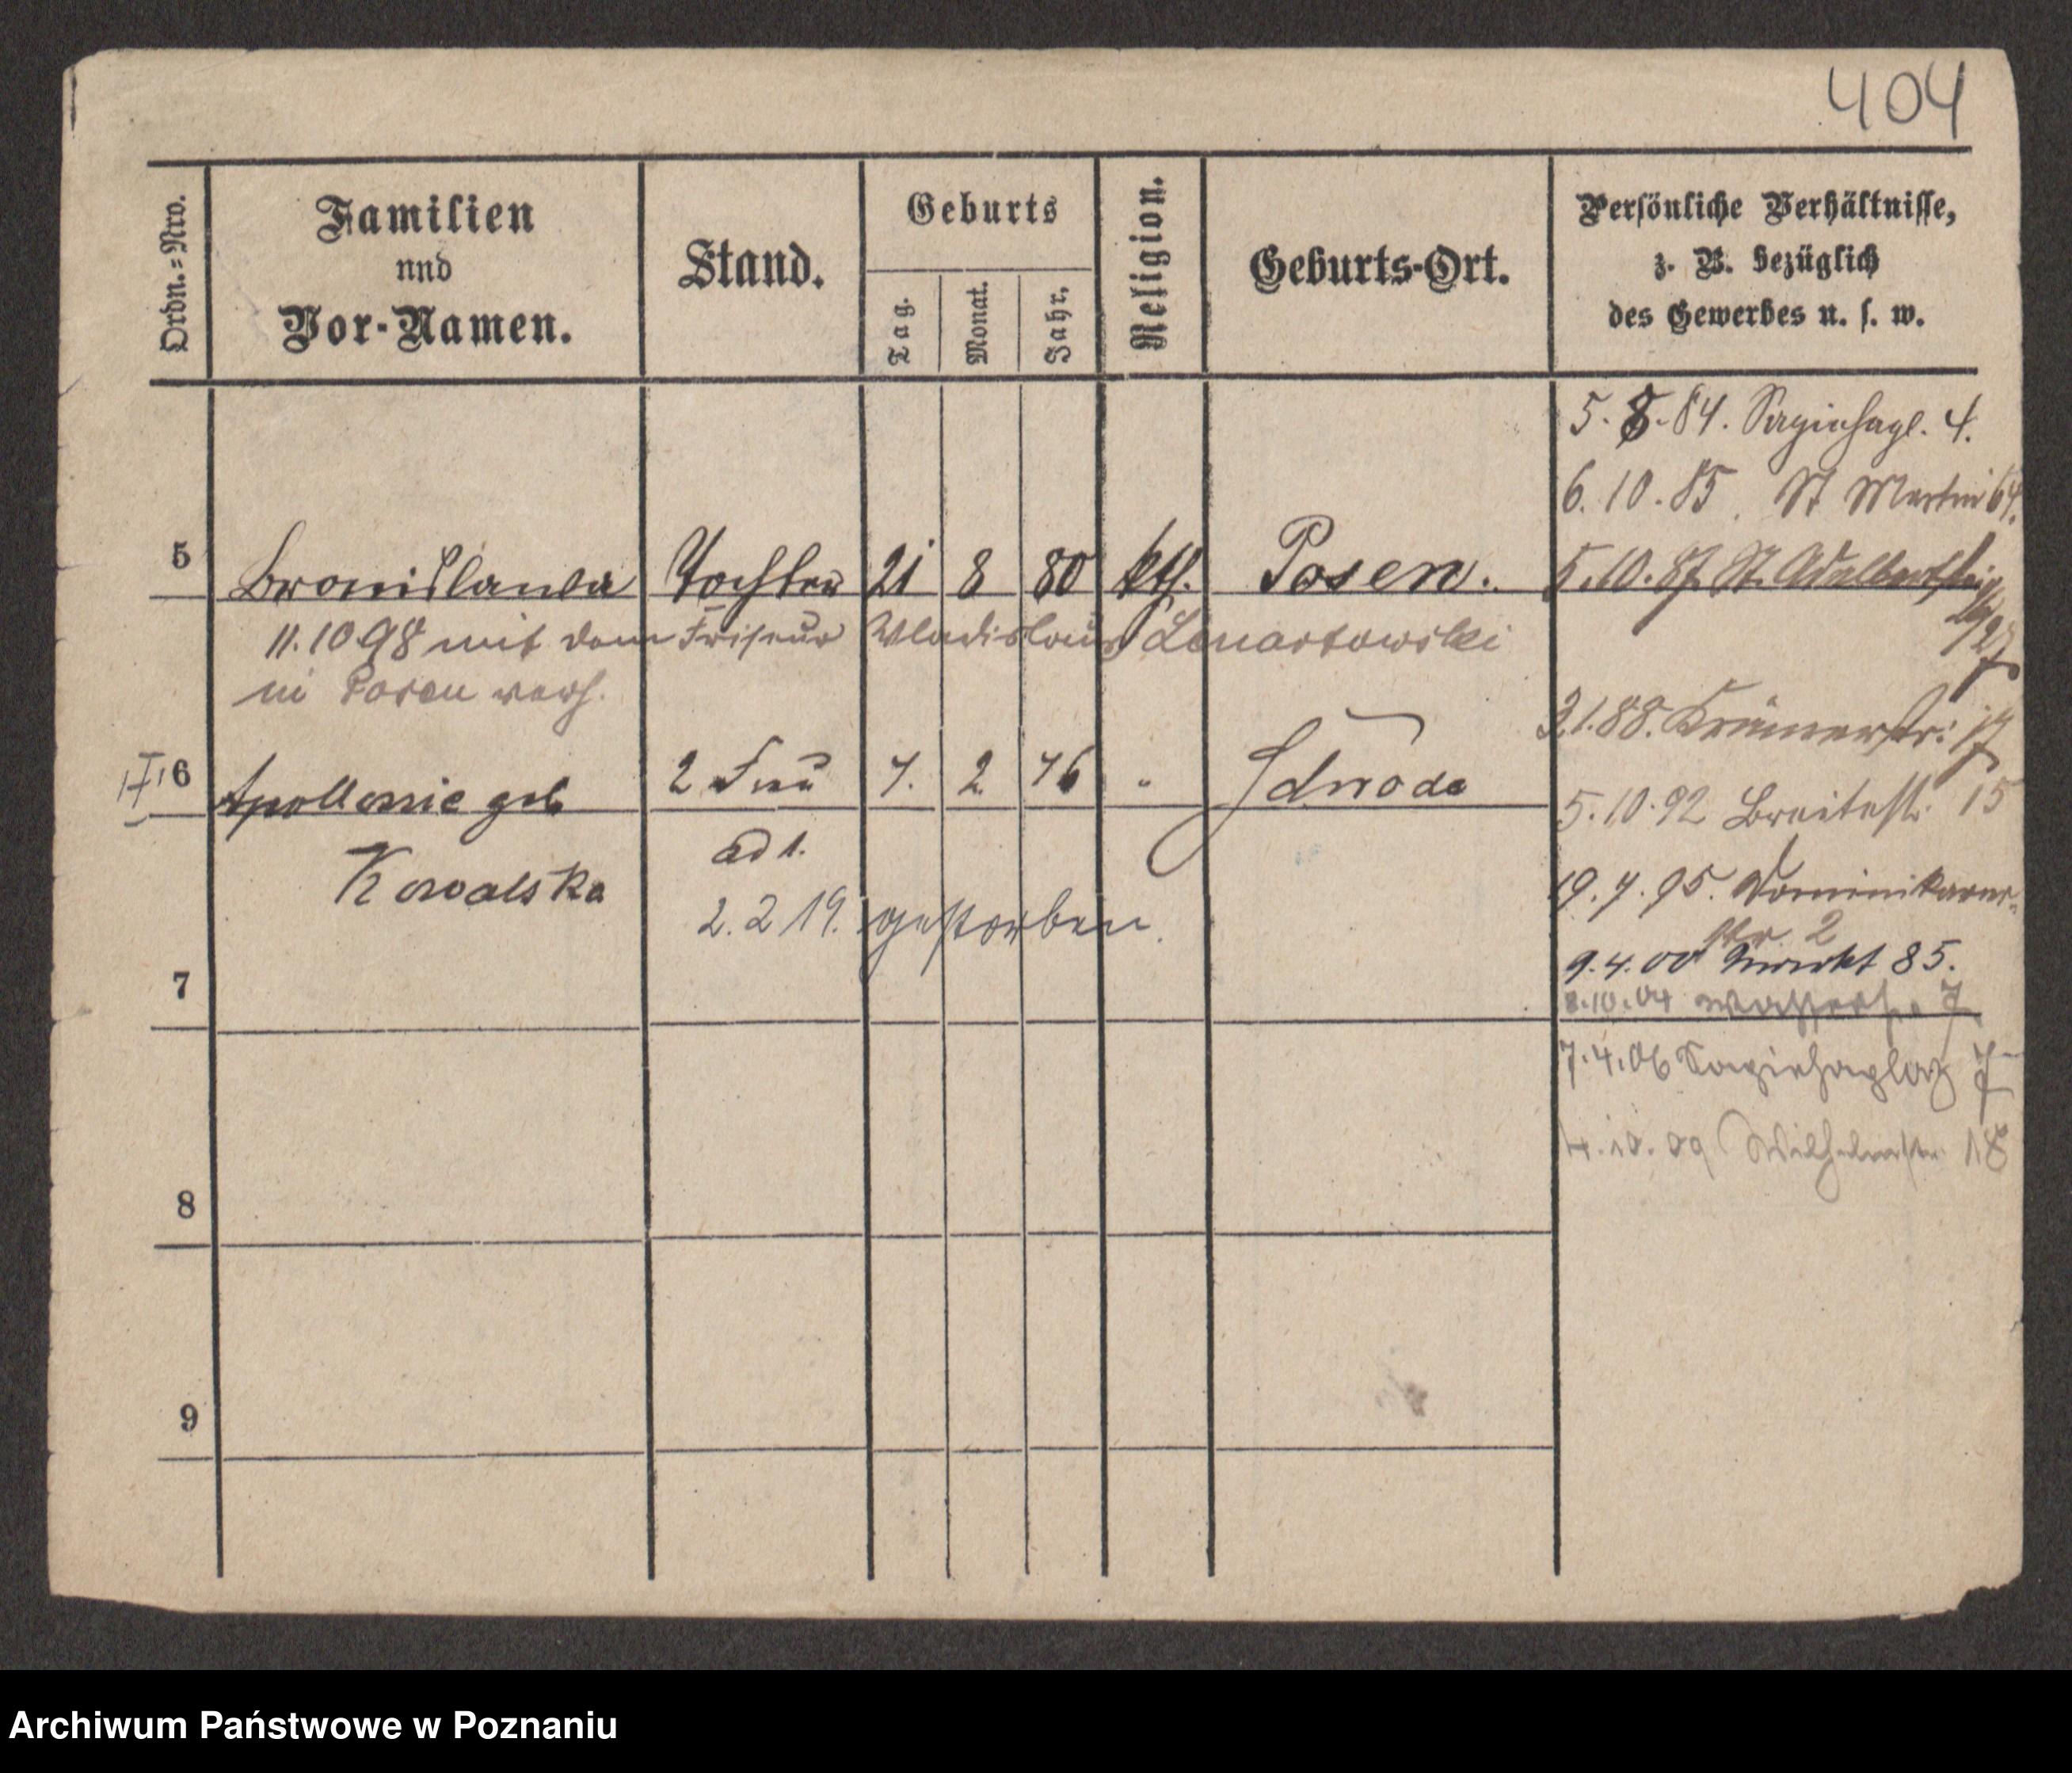 404
Ordn.=Nro.
Familien
und
Vor-Namen.
Stand.
Geburts
Tag.
Monat.
Jahr.
Religion.
Geburts-Ort.
Persönliche Verhältnisse,
z. B. bezüglich
des Gewerbes u. s. w.
5 Bronislawa Tochter 21 8 80 kth. Posen.
11.10 98 mit dem Friseur Wladislaus Lenartowski
in Posen verh.
6 Apollonie geb 2 Frau 7. 2 76 "
Kowalska ad 1.
2. 2 19. gestorben.
7
8
9
5. 8. 84. Sapiehapl. 4.
6. 10. 85. St Martin 64.
5. 10. 87. St. Adalbertstr.
3.1.88. Krämerstr. 17
5. 10. 92 Breitestr. 15
19. 7. 95. Dominikaner-
str 2
9. 4. 00 Markt 85.
8.10.04 Wasserstr. 7
7. 4. 06 Sapiehaplatz 7
4. 10. 09 Wilhelmstr. 18
Archiwum Państwowe w Poznaniu